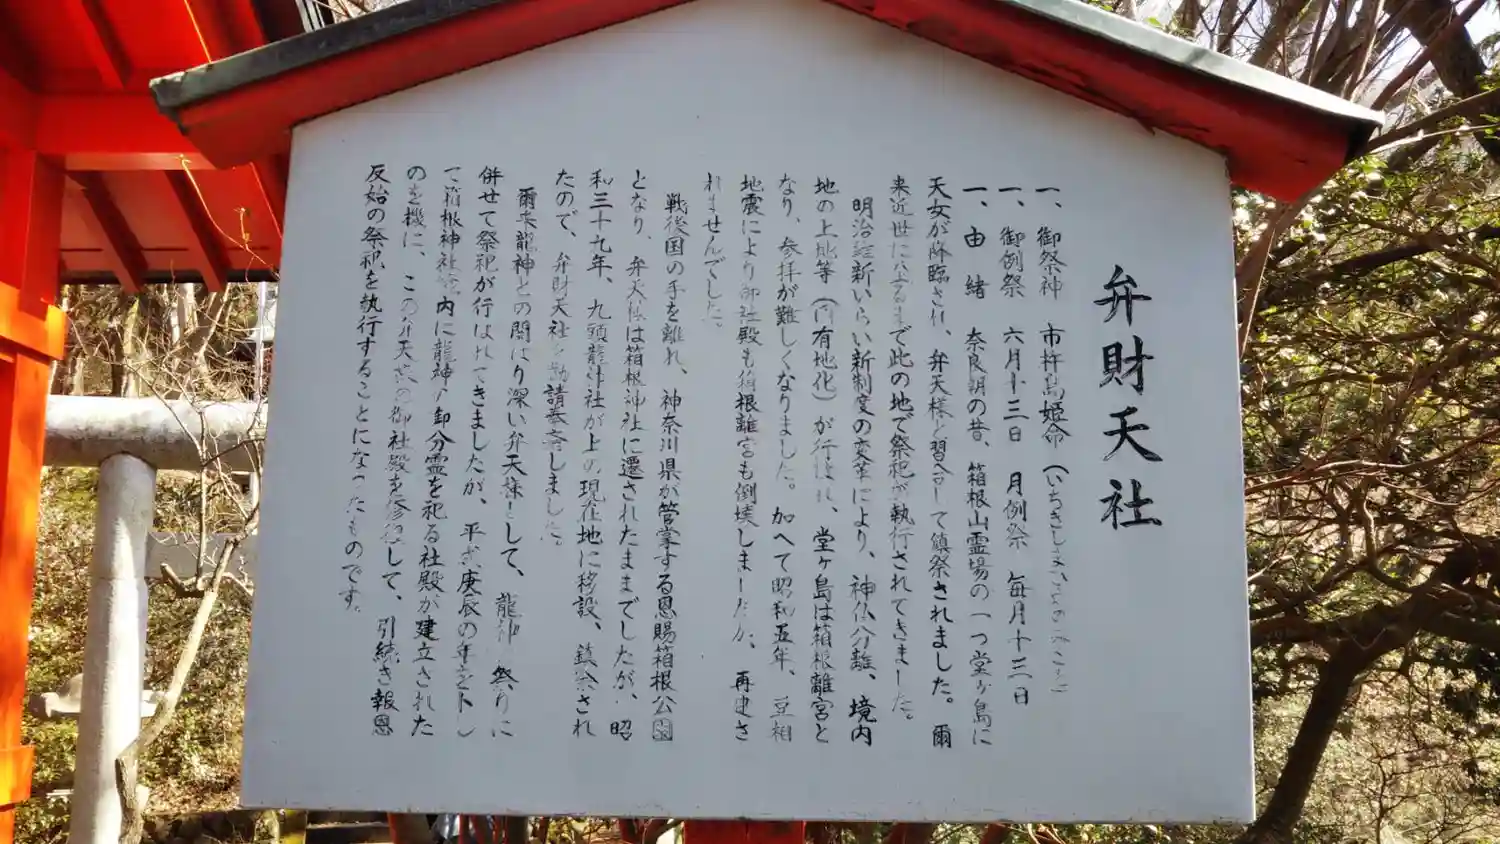 弁財天社
一、御祭神　市杵島姫命（いちきしまひめのみこと）
一、御例祭　六月十三日　月例祭　毎月十三日
一、由　緒　奈良朝の昔、箱根山霊場の一つ堂ヶ島に
天女が降臨され、弁天様と習合して鎮祭されました。爾
来近世に至るまで此の地で祭祀が執行されてきました。
明治維新いらい新制度の変革により、神仏分離、境内
地の上地等（国有地化）が行はれ、堂ヶ島は箱根離宮と
なり、参拝が難しくなりました。加へて昭和五年、豆相
地震により御社殿も箱根離宮も倒壊しましたが、再建さ
れませんでした。
戦後国の手を離れ、神奈川県が管掌する恩賜箱根公園
となり、弁天社は箱根神社に遷されたままでしたが、昭
和三十九年、九頭龍神社が上の現在地に移設、鎮祭され
たので、弁財天社も勧請奉斎しました。
爾来龍神との関はり深い弁天様として、龍神祭りに
併せて祭祀が行はれてきましたが、平成庚辰の年をトし
て箱根神社境内に龍神の御分霊を祀る社殿が建立された
のを機に、この弁天社の御社殿を修復して、引続き報恩
反始の祭祀を執行することになったものです。